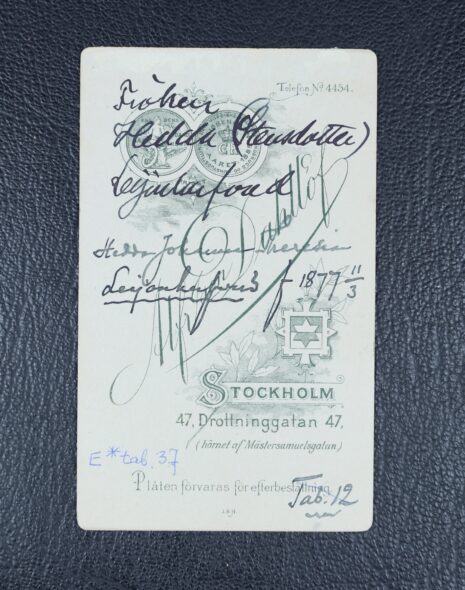 Telefon Nº 4454.
Fröken
Hedda (Stensdotter)
Hedda Johanna Theresia
Leijonhufvud f 1877 11/3
Alfr. Dahllöf
STOCKHOLM
47, Drottninggatan 47,
(hörnet af Mästersamuelsgatan)
E* tab. 37
Plåten förvaras för efterbeställning.
Tab. 12